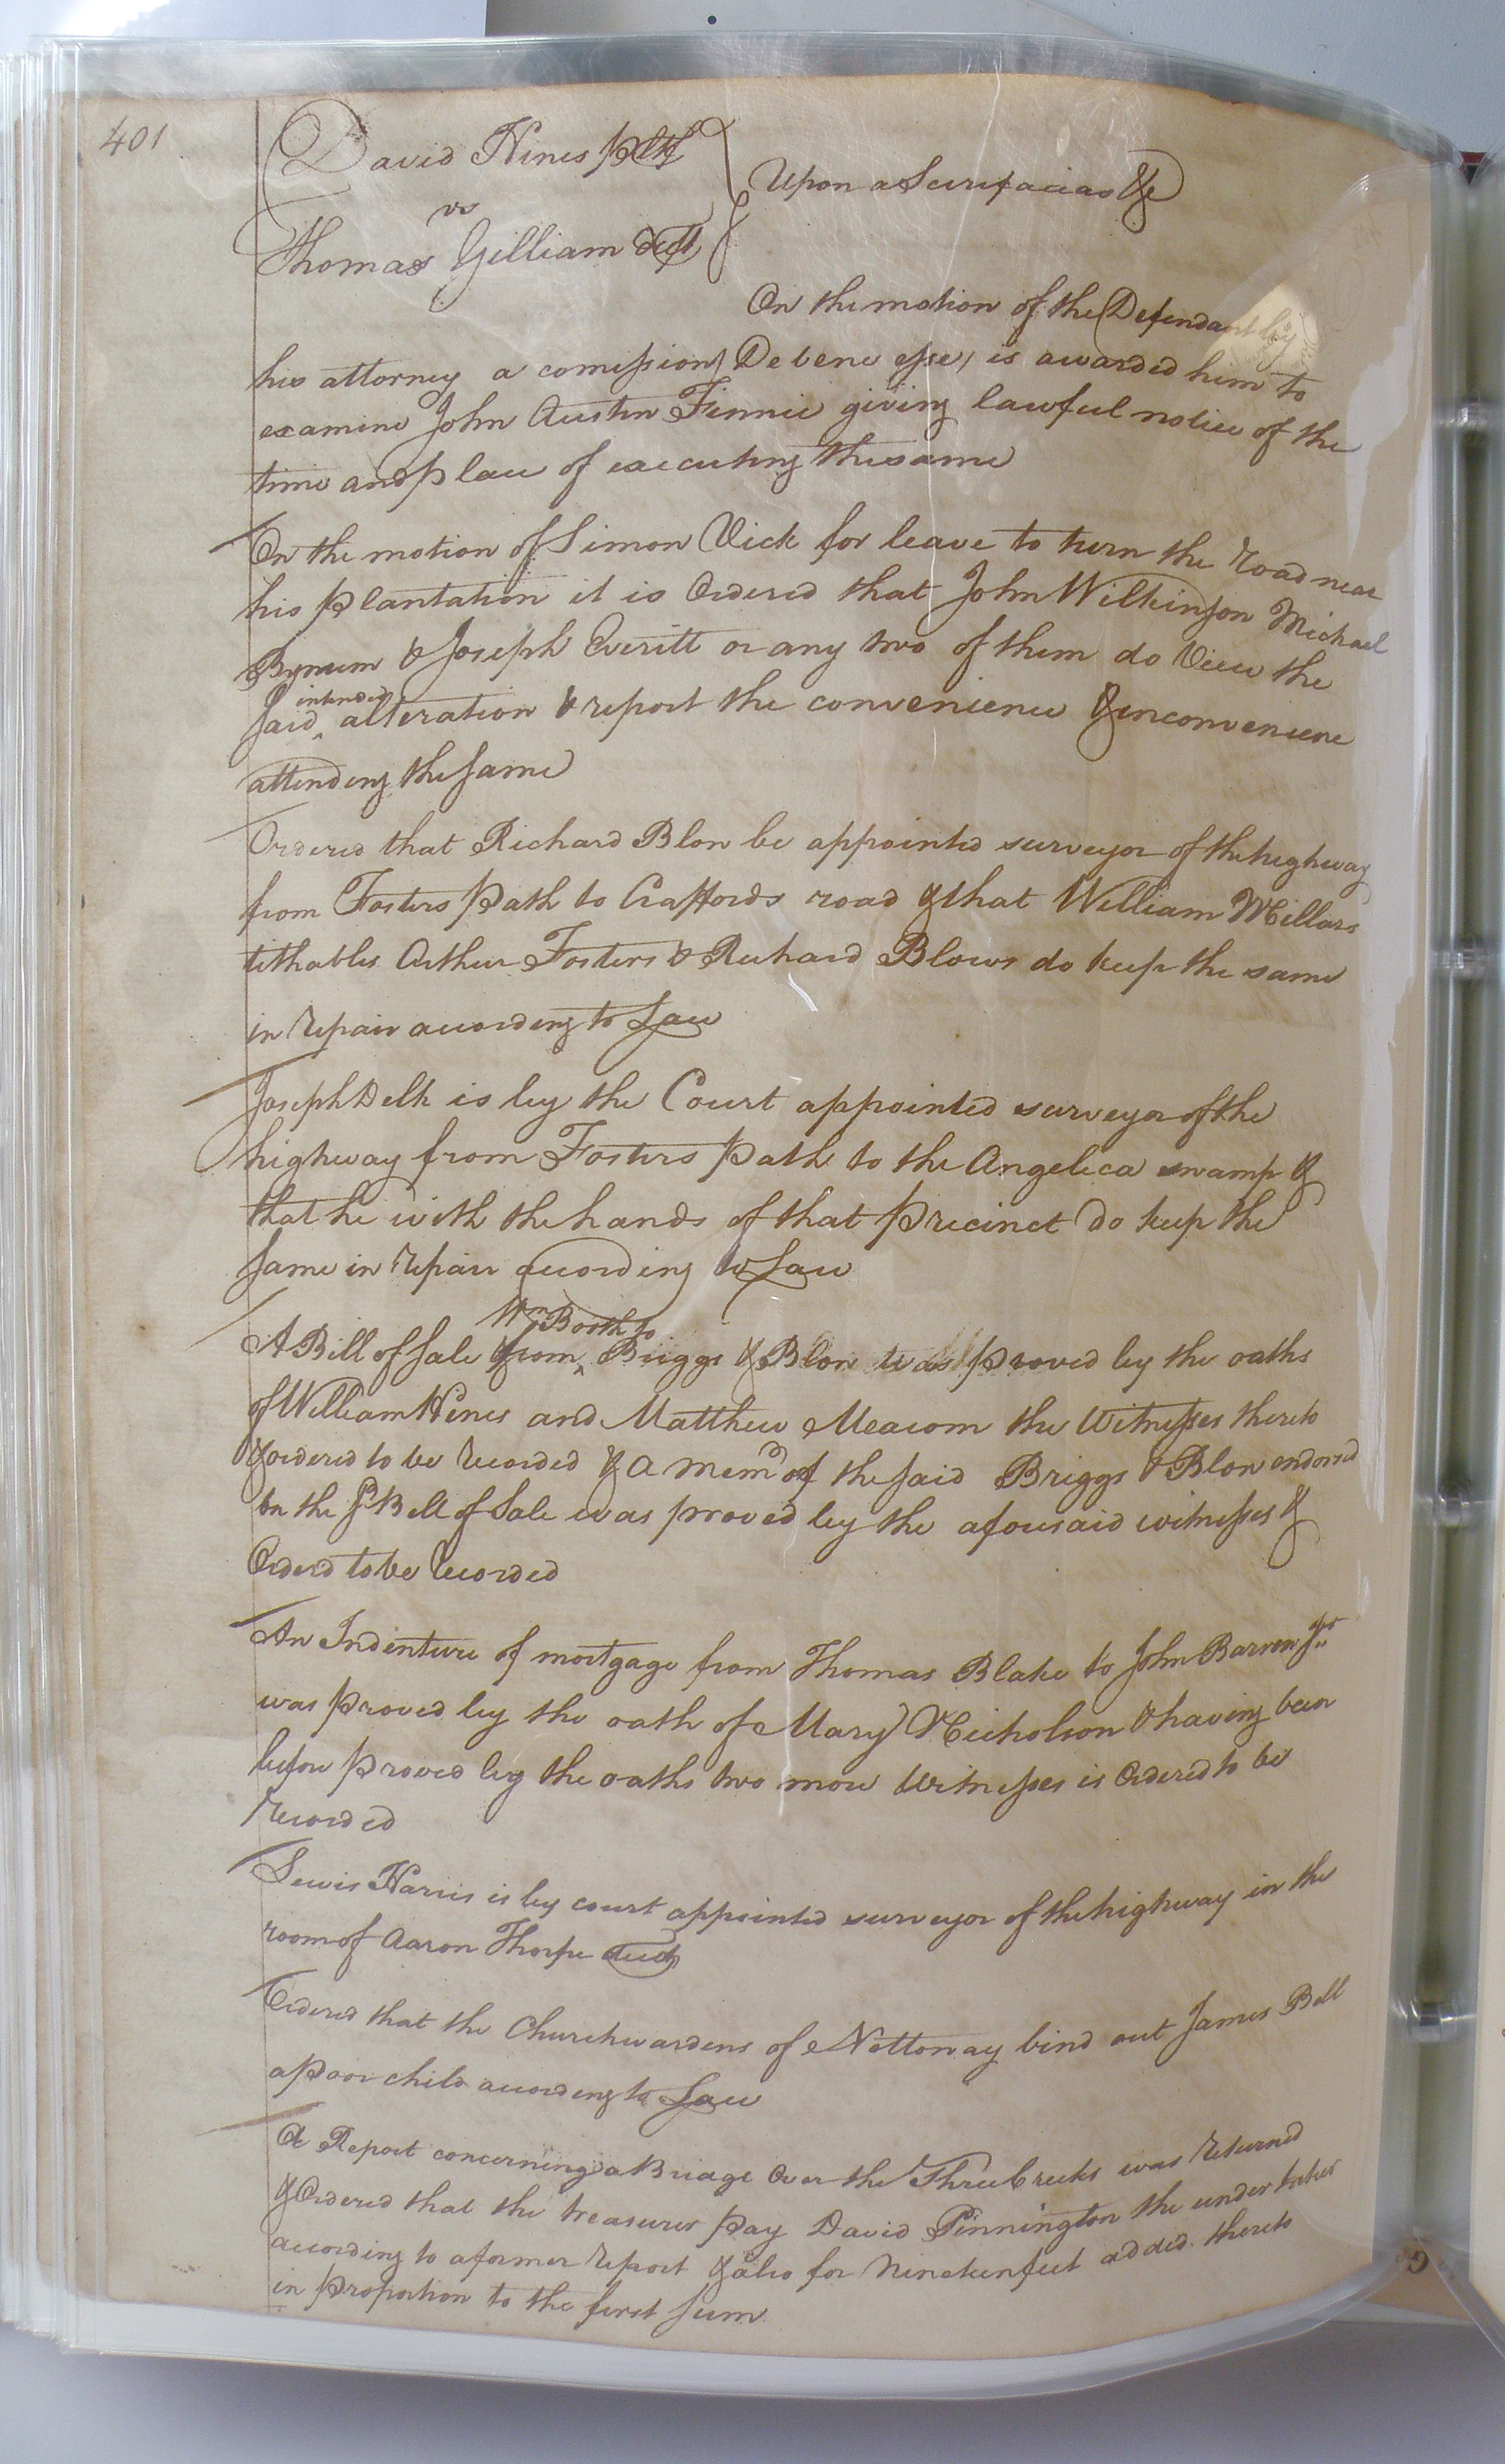 401
David Hines pltf
vs
Thomas Gilliam deft
Upon a Scirifacias &c
On the motion of the Defendant by
his attorney a comission (De bene esse) is awarded him to
examine John Austin Finnie giving lawful notice of the
time and place of executing the same
On the motion of Simon Vick for leave to turn the road near
his plantation it is Ordered that John Wilkinson Michael
Bynum & Joseph Everitt or any two of them do View the
said intended alteration & report the convenience & inconvenience
attending the same
Ordered that Richard Blow be appointed surveyor of the highway
from Fosters path to Craffords road & that William Millars
tithables Arthur Fosters & Richard Blows do keep the same
in repair according to Law
Joseph Delk is by the Court appointed surveyor of the
highway from Fosters path to the Angelica swamp &
that he with the hands of that precinct do keep the
same in repair according to Law
A Bill of Sale from Wm Booth to Briggs & Blow was proved by the oaths
of William Hines and Matthew Meacom the Witnesses thereto
& ordered to be recorded & a memo of the said Briggs & Blow endorsed
on the sd Bill of Sale was proved by the aforesaid witnesses &
Ordered to be recorded
An Indenture of mortgage from Thomas Blake to John Barrow Jr
was proved by the oath of Mary Nicholson & having been
before proved by the oaths two more Witnesses is Ordered to be
recorded
Lewis Harris is by court appointed surveyor of the highway in the
room of Aaron Thorpe decd
Ordered that the Churchwardens of Nottoway bind out James Bell
a poor child according to Law
A Report concerning a Bridge Over the Threecreeks was returned
& Ordered that the treasurer pay David Pinnington the undertaker
according to a former report & also for Nineteen feet added thereto
in proportion to the first sum